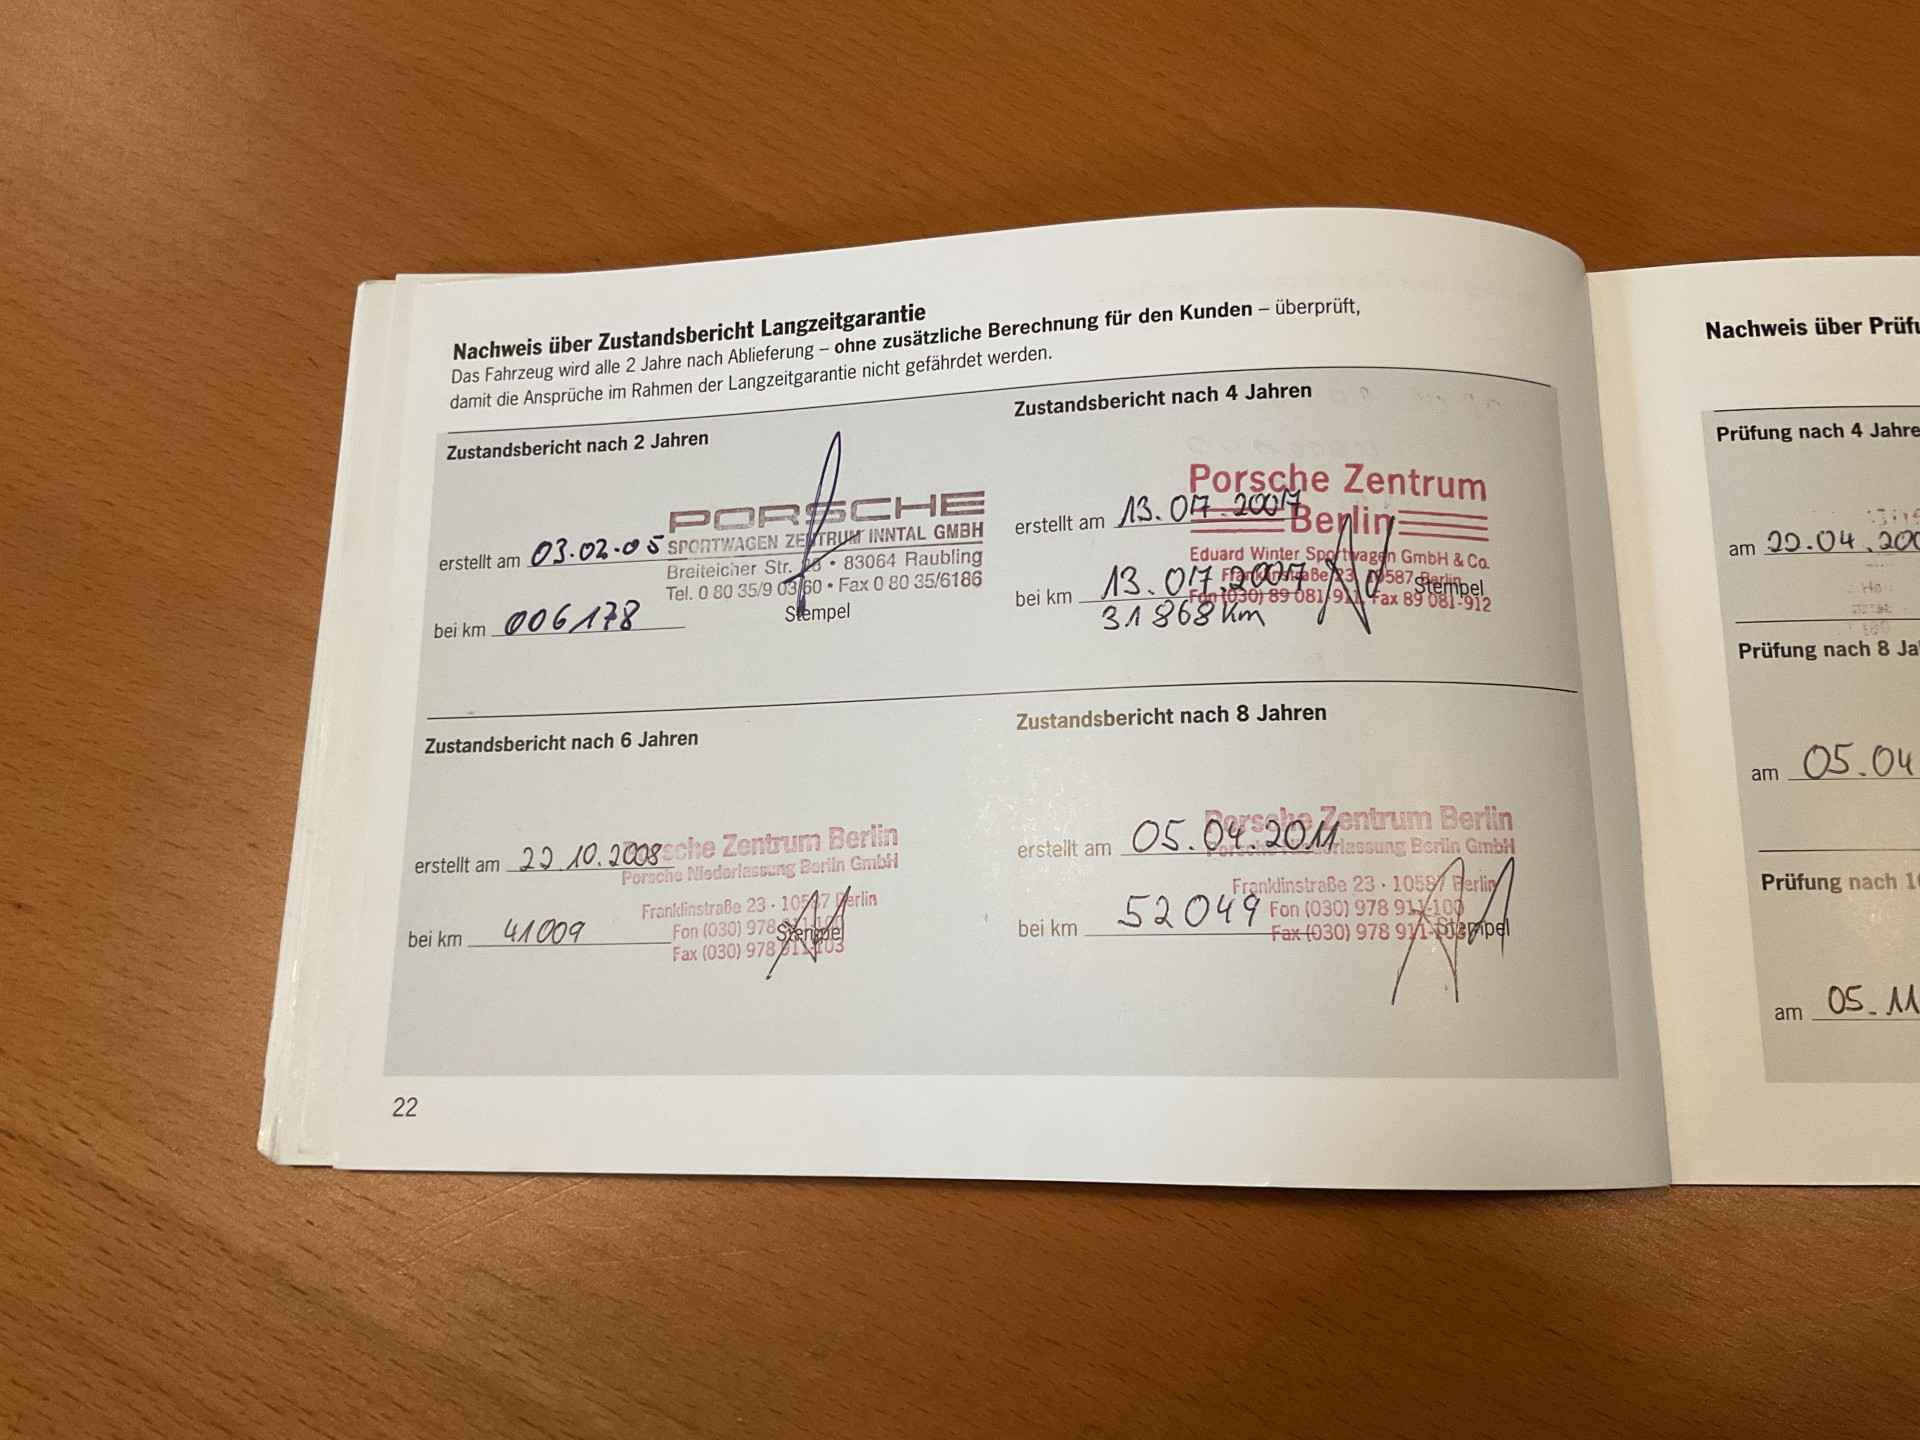 Nachweis über Zustandsbericht Langzeitgarantie
Das Fahrzeug wird alle 2 Jahre nach Ablieferung – ohne zusätzliche Berechnung für den Kunden – überprüft,
damit die Ansprüche im Rahmen der Langzeitgarantie nicht gefährdet werden.
Zustandsbericht nach 2 Jahren
PORSCHE
SPORTWAGEN ZENTRUM INNTAL GMBH
Breiteicher Str. • 83064 Raubling
Tel. 0 80 35/9 03 60 • Fax 0 80 35/6186
erstellt am 03.02.05
bei km 006178
Stempel
Zustandsbericht nach 4 Jahren
Porsche Zentrum
Berlin
Eduard Winter Sportwagen GmbH & Co.
Franklinstraße 23, 10587 Berlin
Fon (030) 89 081-911, Fax 89 081-912
erstellt am 13.07.2007
bei km 13.07.2007
31868 km
Stempel
Zustandsbericht nach 6 Jahren
Porsche Zentrum Berlin
Porsche Niederlassung Berlin GmbH
Franklinstraße 23 · 10587 Berlin
Fon (030) 978 911-100
Fax (030) 978 911-103
erstellt am 22.10.2008
bei km 41009
Stempel
Zustandsbericht nach 8 Jahren
Porsche Zentrum Berlin
Porsche Niederlassung Berlin GmbH
Franklinstraße 23 · 10587 Berlin
Fon (030) 978 911-100
Fax (030) 978 911-103
erstellt am 05.04.2011
bei km 52049
Stempel
22
Nachweis über Prüfu
Prüfung nach 4 Jahre
am 22.04.200
Prüfung nach 8 Ja
am 05.04
Prüfung nach 1
am 05.11